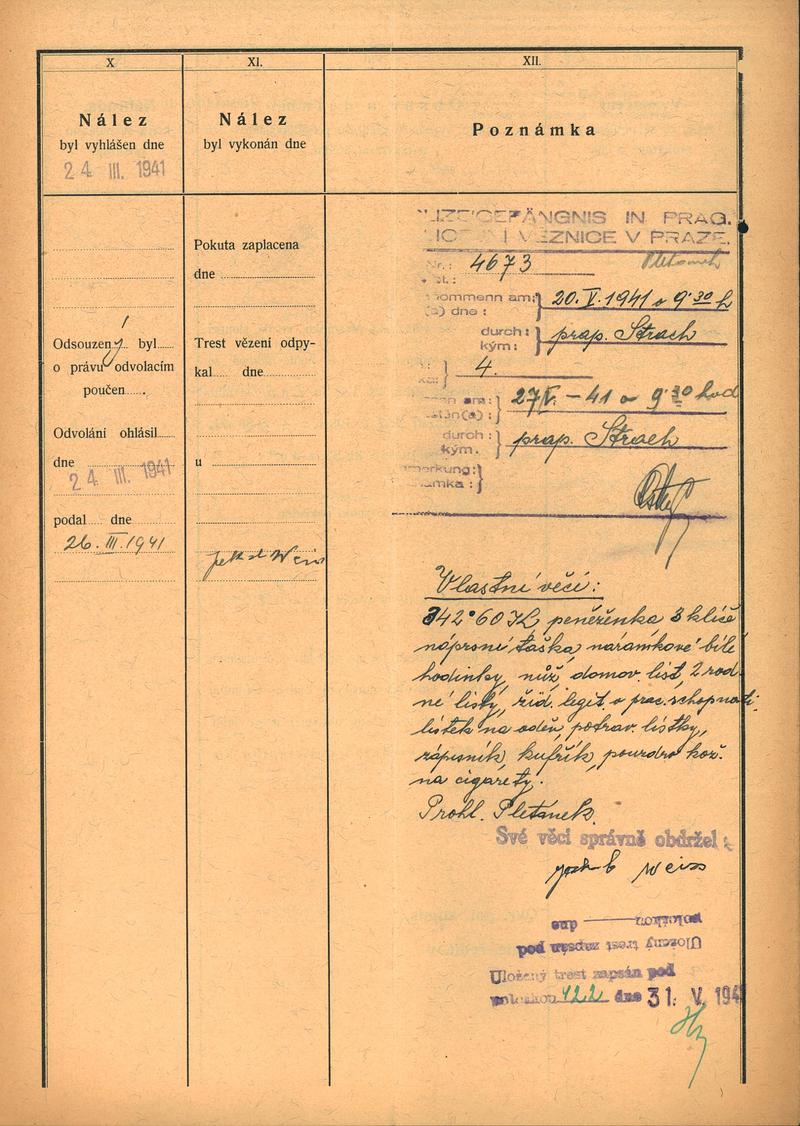 X
Nález
byl vyhlášen dne
24. III. 1941
Odsouzený byl
o právu odvolacím
poučen
Odvolání ohlásil
dne
24. III. 1941
podal dne
26. III. 1941
XI.
Nález
byl vykonán dne
Pokuta zaplacena
dne
Trest vězení odpy-
kal dne
u
Weiss
XII.
Poznámka
LIZEIGEFÄNGNIS IN PRAG.
VĚZNICE V PRAZE.
Nr.: 4673
Pletanek
nommenn am: 20. V. 1941 o 9·30 h
(a) dne:
durch: prap. Strach
kým:
4.
am: 27/V. – 41 o 9·30 hod
(a):
durch: prap. Strach
kým.
merkung:
námka:
Vlastní věci:
342·60 K, peněženka 3 klíče
náprsní taška, náramkové bílé
hodinky, nůž, domov. list, 2 rod-
né listy, říd. legit. o prac. schopnosti,
lístek na oděv, potrav. lístky,
zápisník, kufřík, pouzdro kož.
na cigarety.
Prohl. Pletanek.
Své věci správně obdržel:
Weiss
položkou dne
Uložený trest zapsán pod
Uložený trest zapsán pod
položkou 422 dne 31. V. 194